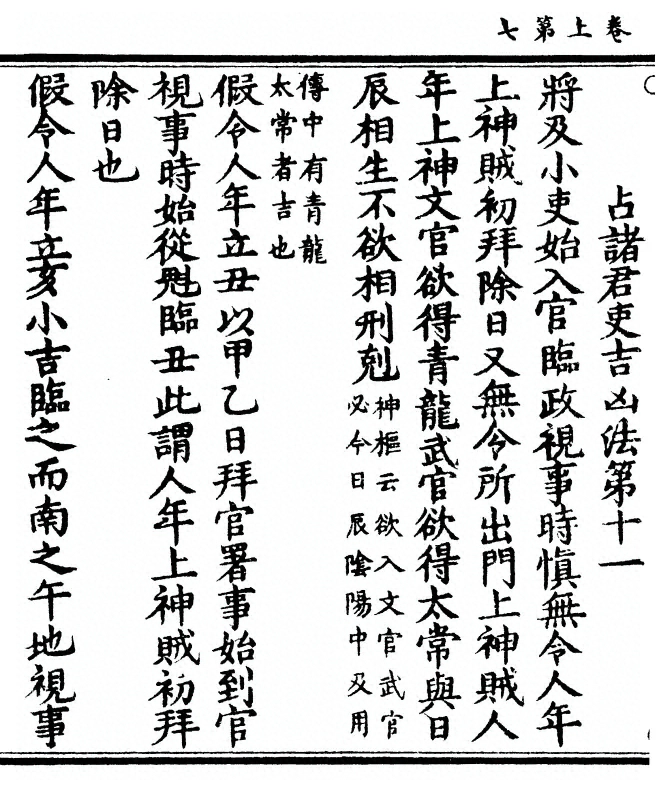 卷上第七
占諸君吏吉凶法第十一
將及小吏始入官臨政視事時慎無令人年
上神賊初拜除日又無令所出門上神賊人
年上神文官欲得青龍武官欲得太常與日
辰相生不欲相刑剋神樞云欲入文官武官
必今日辰陰陽中及用
傳中有青龍
太常者吉也
假令人年立丑以甲乙日拜官署事始到官
視事時始從魁臨丑此謂人年上神賊初拜
除日也
假令人年立亥小吉臨之而南之午地視事